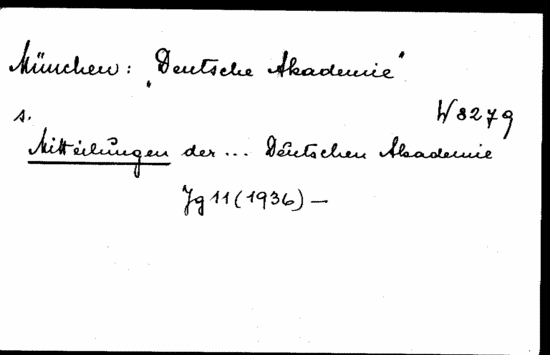 München: "Deutsche Akademie"
s. W 8279
Mitteilungen der ... Deutschen Akademie
Jg 11 (1936) —